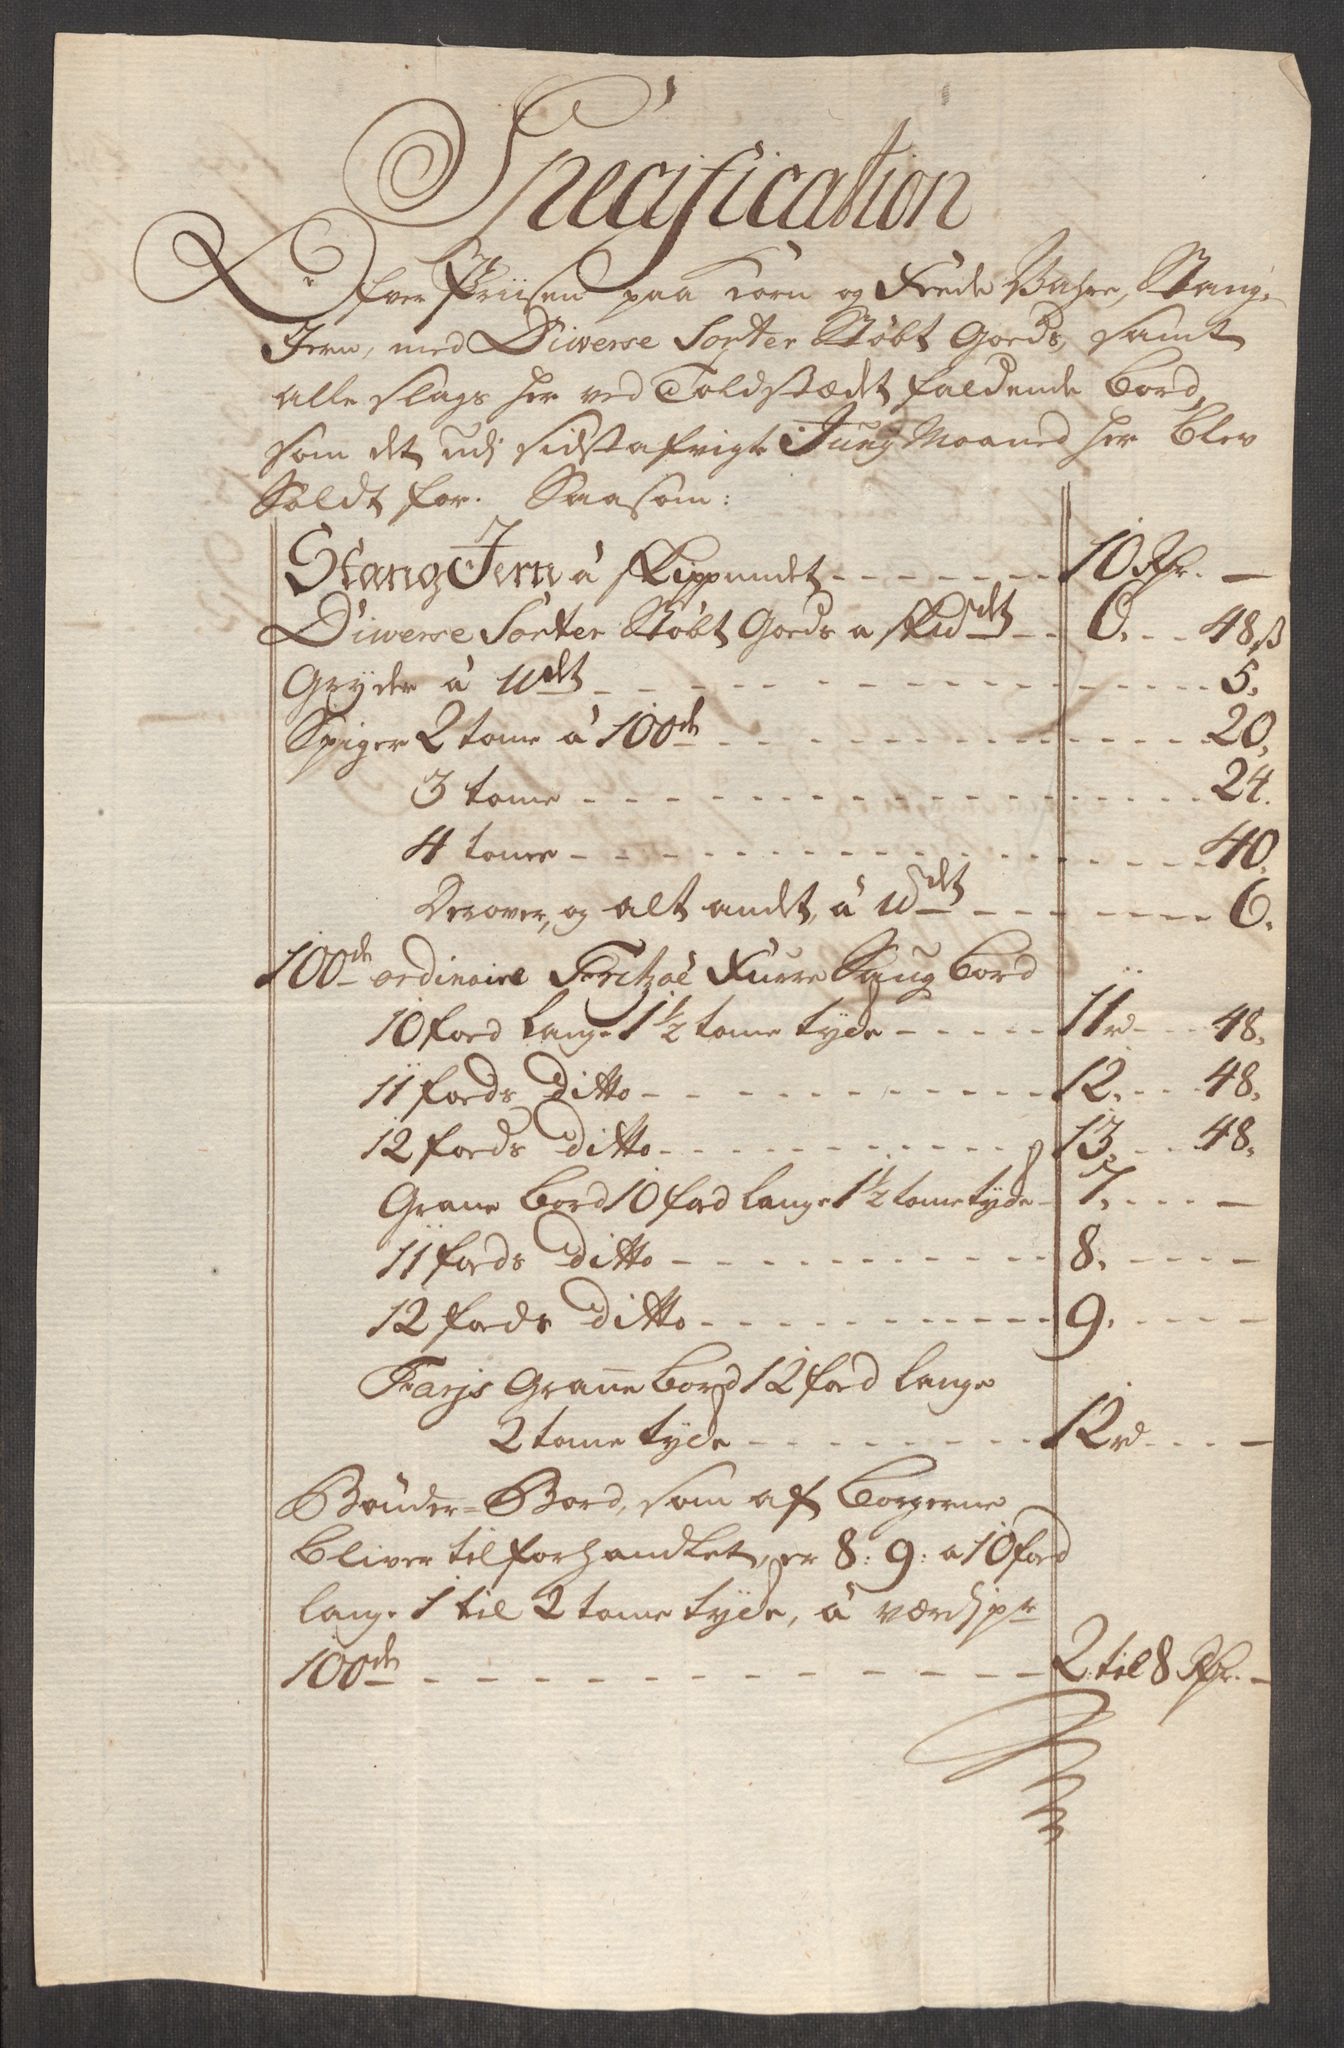 Specification
Ofver Priisen paa Korn og Fede Vahre, Stang-
Jern, med Diverse Sorter Støbt Goeds, samt
alle slags her ved Toldstædet faldende bord,
som det udj sidstafvigte Junÿ Maaned her blev
Soldt for. Saasom:
Stang Jern â Skippundet - - - - - - - 10 Rdr. —
Diverse Sorter Støbt Goeds a Skdet - - 6. - - 48 ß
Grÿder â ℔det - - - - - - - - - - - - - - 5.
Spiger 2 tome â 100de - - - - - - - - - - 20.
3 tome - - - - - - - - - - - - - - 24.
4 tome - - - - - - - - - - - - - - 40.
Derover, og alt andet, â ℔det - - - - - - - 6.
100de ordinaire Fritzøe Furre Saug bord
10 foed lange 1½ tome tÿcke - - - - - 11 rd - - 48.
11 foeds Ditto - - - - - - - - - - - - 12. - - 48.
12 foeds ditto - - - - - - - - - - - - 13. - - 48.
Grane bord 10 foed lange 1½ tome tÿcke - 7. - - - —
11 foeds ditto - - - - - - - - - - - - 8. - - - —
12 foeds ditto - - - - - - - - - - - - 9. - - - —
Farjs Grane bord 12 foed lange
2 tome tÿcke - - - - - - - - 12 rd - - - —
Bönder-Bord, som af borgerne
bliver tilforhandlet, er 8: 9: a 10 foed
lange 1 til 2 tome tÿcke, â værdj pr
100de - - - - - - - - - - - - - 2 til 8 Rdr. —